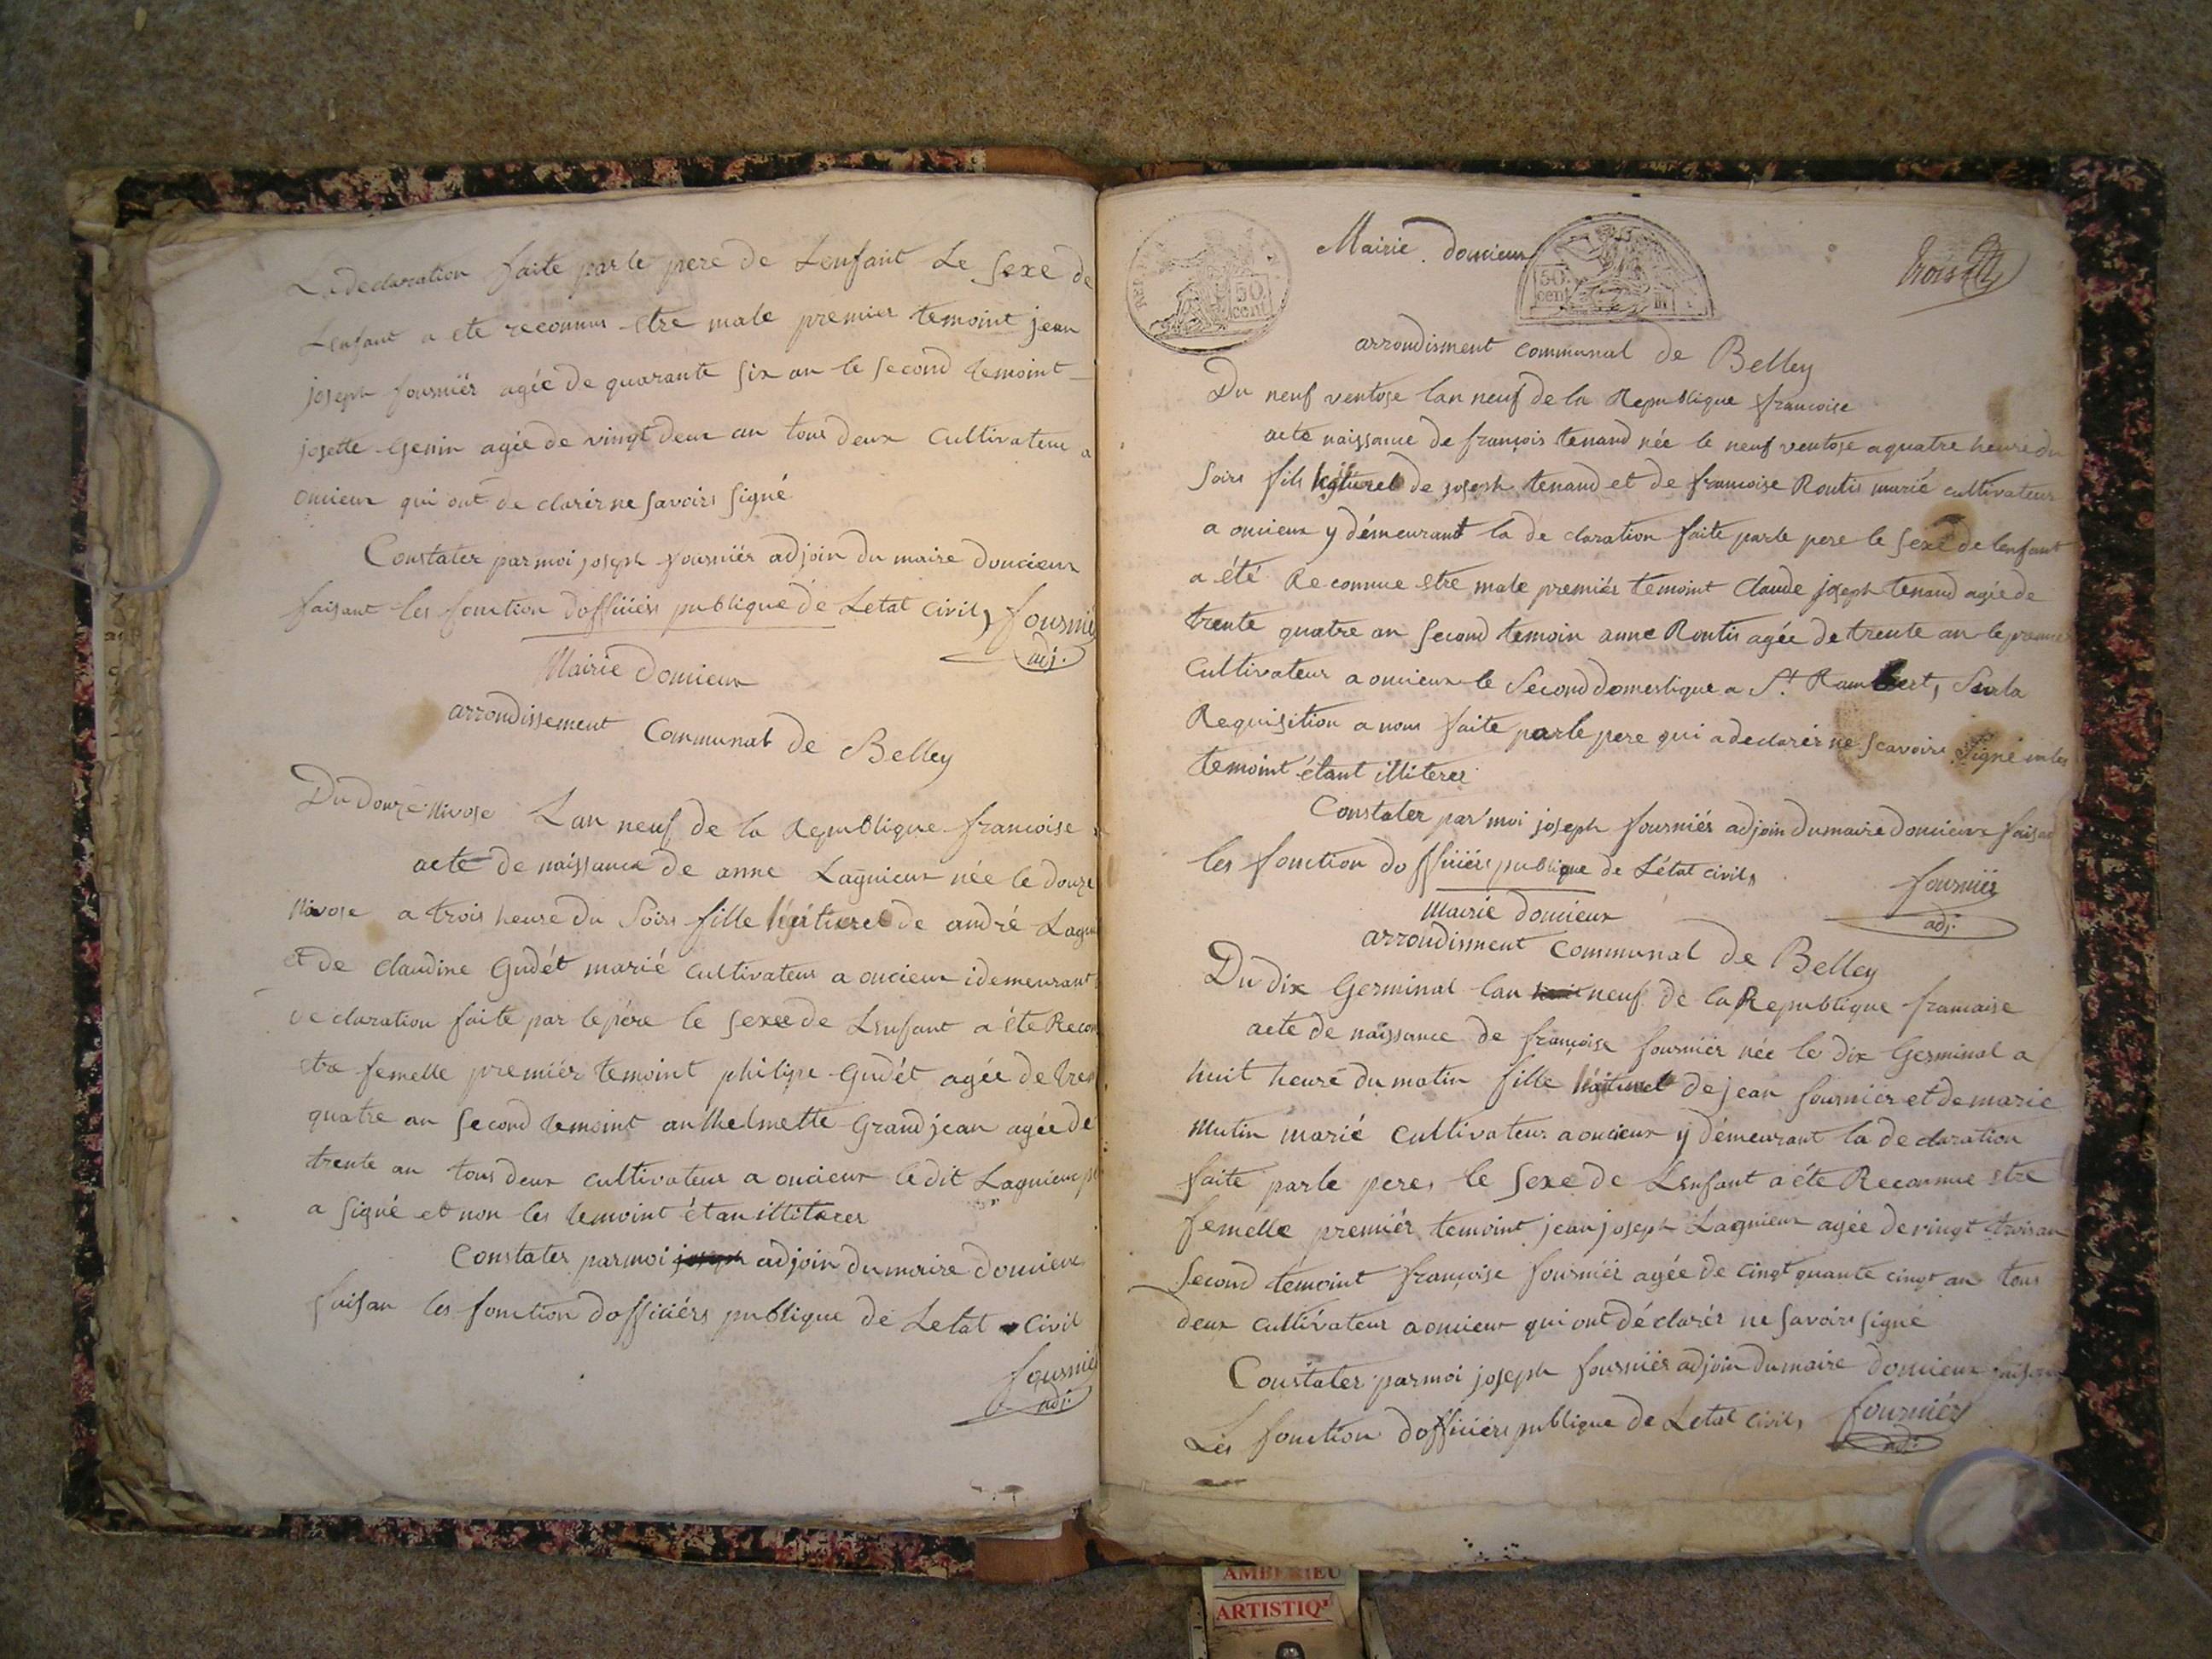 La declaration faite par le pere de Lenfant Le sexe de
Lenfant a ete reconnus etre male premier temoint jean
joseph fourniér agée de quarante six an le second temoint
josette genin agée de vingt deux an tous deux Cultivateur a
oncieux qui ont de clarér ne savoirs signé
Constater par moi joseph fourniér adjoin du maire doncieux
faisant les fonction dofficiérs publique de Letat civil, fournié
adj.
Mairie doncieux
arrondissement Communal de Belley
Du douze Nivose Lan neuf de la Republique francoise
acte de naissance de anne Lagnieux née le douze
Nivose a trois heure du Soirs fille de andré Lagn
et de claudine Gudét marié cultivateur a oncieux idemeurant
declaration faite par le pére le sexe de Lenfant a éte Recon
etre femelle premiér temoint philipe Gudét agée de tren
quatre an second temoint anthelmette Grandjean agée de
trente an tous deux cultivateur a oncieux le dit Lagnieux
a signé et non les temoint étan illiterer
Constater par moi joseph adjoin du maire doncieux
faisan les fonction dofficiérs publique de Letat civil
fournier
adj.
Mairie doncieux
50. cent
50. cen
trois
arrondisment communal de Belley
Du neuf ventose lan neuf de la Republique francoise
acte naissance de françois tenand née le neuf ventose a quatre heure du
soirs fils de joseph tenand et de francoise Routis marié cultivateur
a oncieux y démeurant la de claration faite par le pere le sexe de lenfant
a été Reconnue etre male premiér temoint Claude joseph tenand agée de
trente quatre an second temoin anne Routis agée de trente an le premie
Cultivateur a oncieux le second domestique a St. Rambert, Sur la
Requisition a nous faite par le pere qui a declarér ne scavoirs signé
temoint étant illiterer
Constater par moi joseph fourniér adjoin du maire doncieux faisan
les fonction dofficiérs publique de Létat civil,
fourniér
adj.
Mairie doncieux
arrondisment Communal de Belley
Du dix Germinal lan neuf de la Republique francaise
acte de naissance de françoise fourniér née le dix Germinal a
huit heure du matin fille de jean fourniér et de marie
Mutin marié cultivateur a oncieux y démeurant la declaration
faite par le pere, le sexe de Lenfant a éte Reconnue etre
femelle premiér temoint jean joseph Lagnieux agée de vingt trois an
Second temoint françoise fourniér agée de cingt quante cingt an tous
deux cultivateur a oncieux qui ont déclarér ne savoirs signé
Constater par moi joseph fourniér adjoin du maire doncieux faisan
Les fonction dofficiérs publique de Letat civil, fourniér
adj.
AMBERIEU
ARTISTIQ